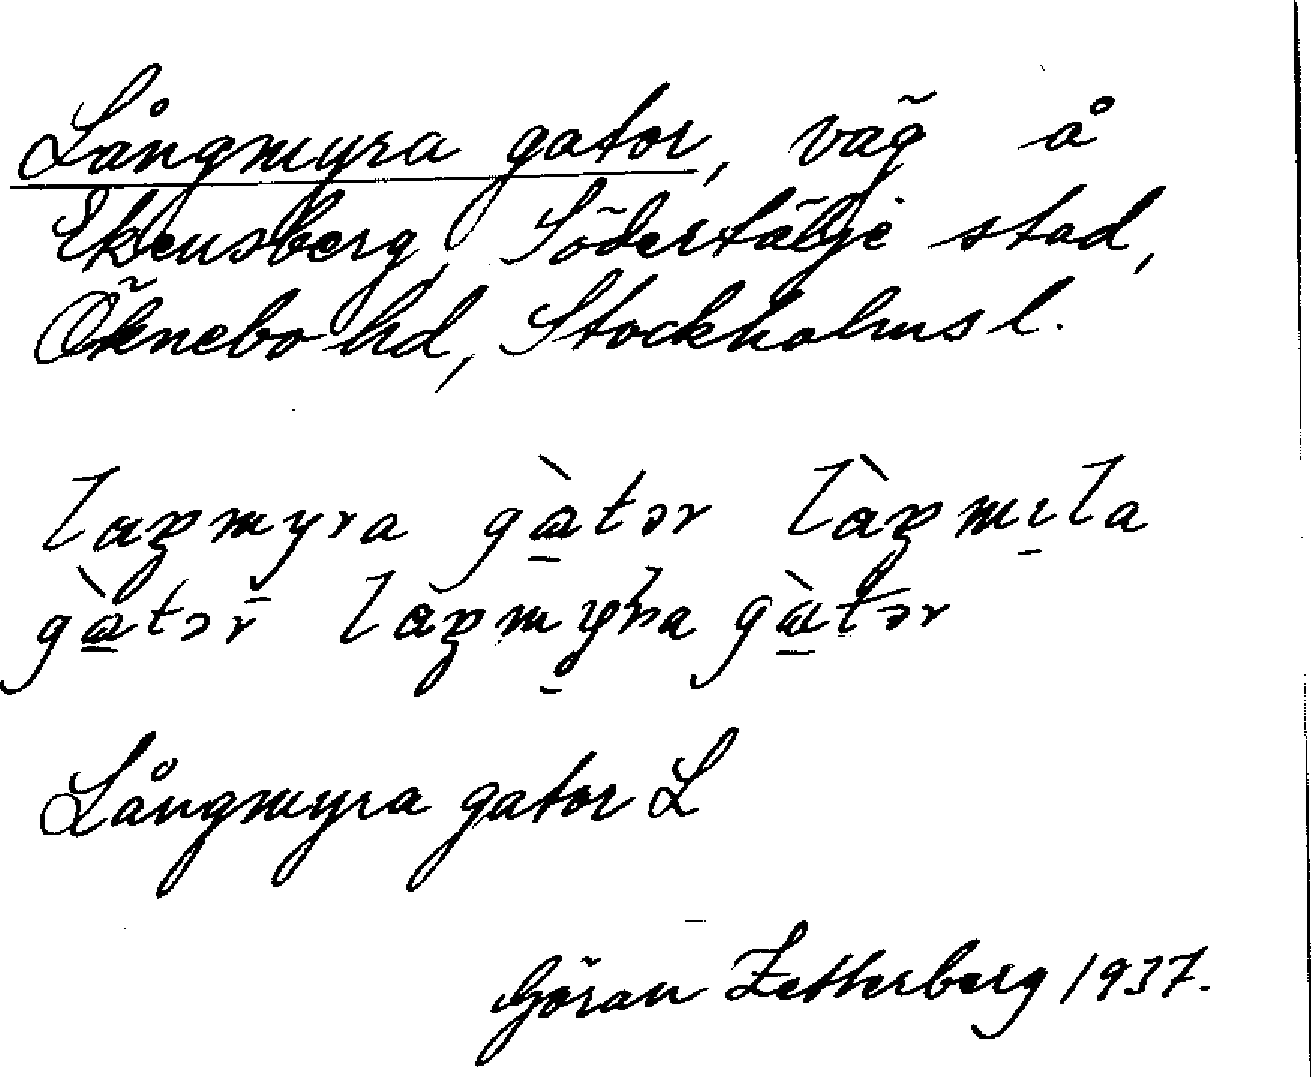 Långmyra gator, väg å
Ekensberg, Södertälje stad,
Öknebo hd, Stockholms l.
gàtər
gàtər gàtər
Långmyra gator L
Göran Zetterberg 1937.